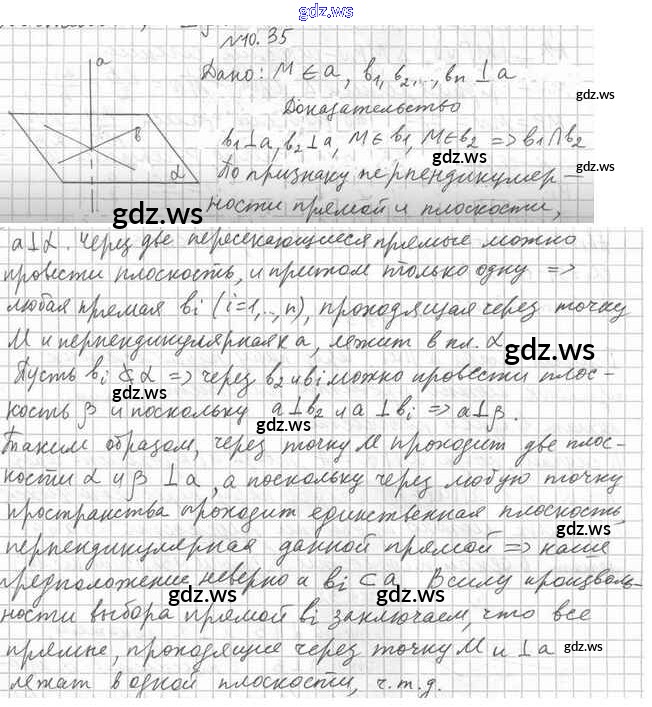 gdz.ws
№10.35
a
Дано: M ∈ a, b₁, b₂,..., bn ⊥ a
gdz.ws
Доказательство
b
b₁⊥a, b₂⊥a, M∈b₁, M∈b₂ => b₁∩b₂
gdz.ws gdz.ws
α По признаку перпендикуляр-
ности прямой и плоскости,
gdz.ws gdz.ws
a⊥α. Через две пересекающиеся прямые можно
провести плоскость, и притом только одну =>
любая прямая bi (i=1,..,n), проходящая через точку
M и перпендикулярная к a, лежит в пл. α.
gdz.ws
Пусть bi ⊄ α => через b₂ и bi можно провести плос-
кость β и поскольку a⊥b₂ и a⊥bi => a⊥β.
gdz.ws gdz.ws
Таким образом, через точку M проходит две плос-
кости α и β ⊥ a, а поскольку через любую точку
пространства проходит единственная плоскость,
gdz.ws
перпендикулярная данной прямой => наше
предположение неверно и bi ⊂ α. В силу произволь-
gdz.ws gdz.ws
ности выбора прямой bi заключаем, что все
прямые, проходящие через точку M и ⊥ a
gdz.ws
лежат в одной плоскости, ч.т.д.
gdz.ws